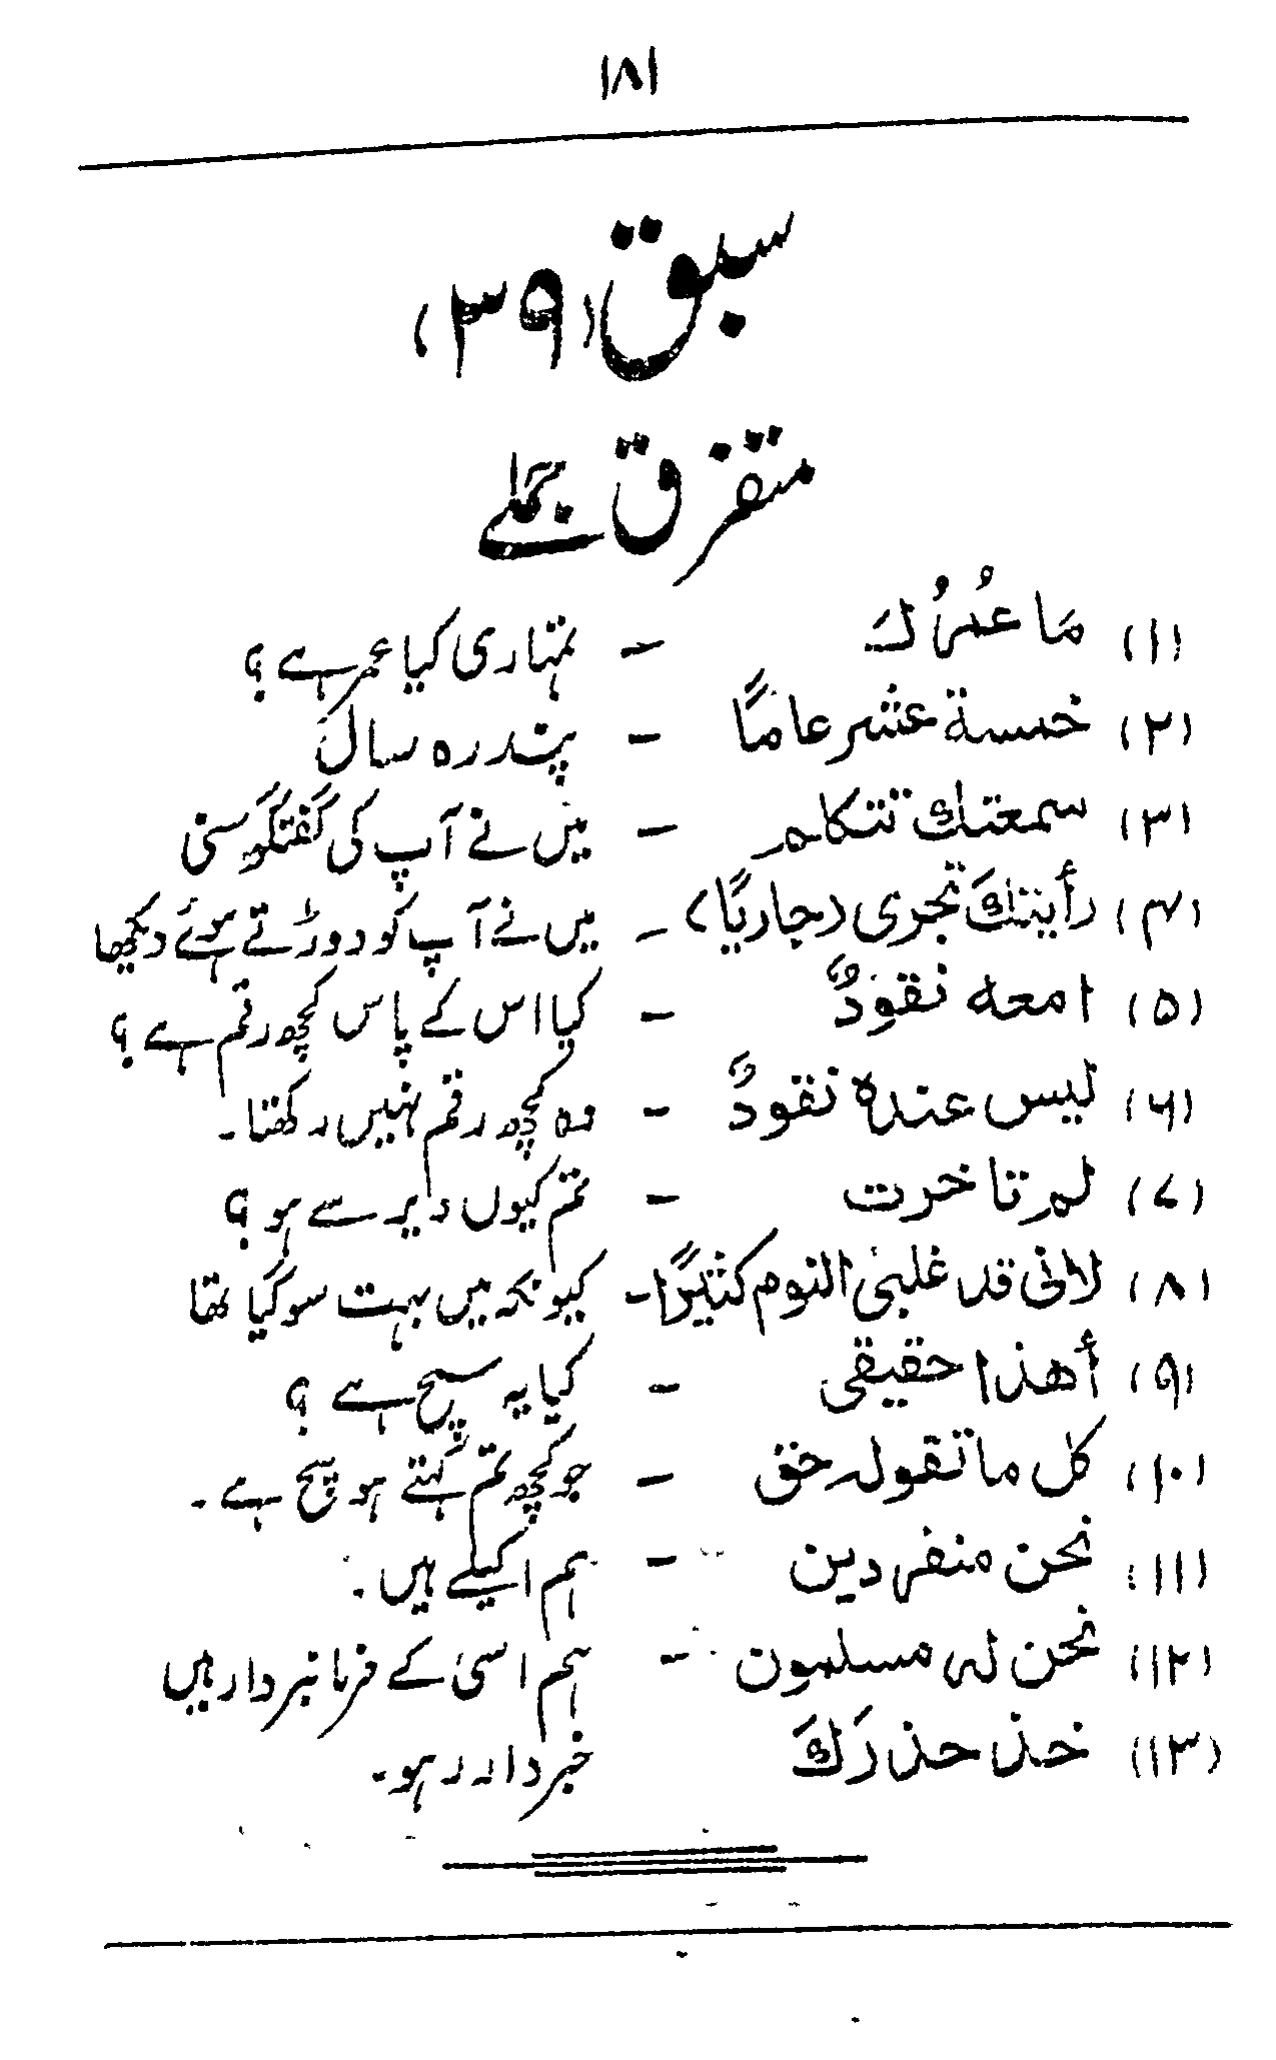 ۱۸۱
سبق (۳۹)
متفرق جملے
(۱) مَا عُمُرُكَ - تمہاری کیا عمر ہے؟
(۲) خمسة عشر عامًا - پندرہ سال
(۳) سمعتك تتكلم - میں نے آپ کی گفتگو سنی
(۴) رأيتكَ تجرى (جاريًا) - میں نے آپ کو دوڑتے ہوئے دیکھا
(۵) امعه نقودٌ - کیا اس کے پاس کچھ رقم ہے؟
(۶) ليس عنده نقودٌ - وہ کچھ رقم نہیں رکھتا۔
(۷) لم تاخرت - تم کیوں دیر سے ہو؟
(۸) لانى قد غلبنى النوم كثيرًا - کیونکہ میں بہت سو گیا تھا
(۹) أهذا حقيقى - کیا یہ سچ ہے؟
(۱۰) كل ما تقوله حق - جو کچھ تم کہتے ہو سچ ہے۔
(۱۱) نحن منفردين - ہم اکیلے ہیں۔
(۱۲) نحن له مسلمون - ہم اسی کے فرمانبردار ہیں
(۱۳) خذ حذرَكَ خبردار رہو۔